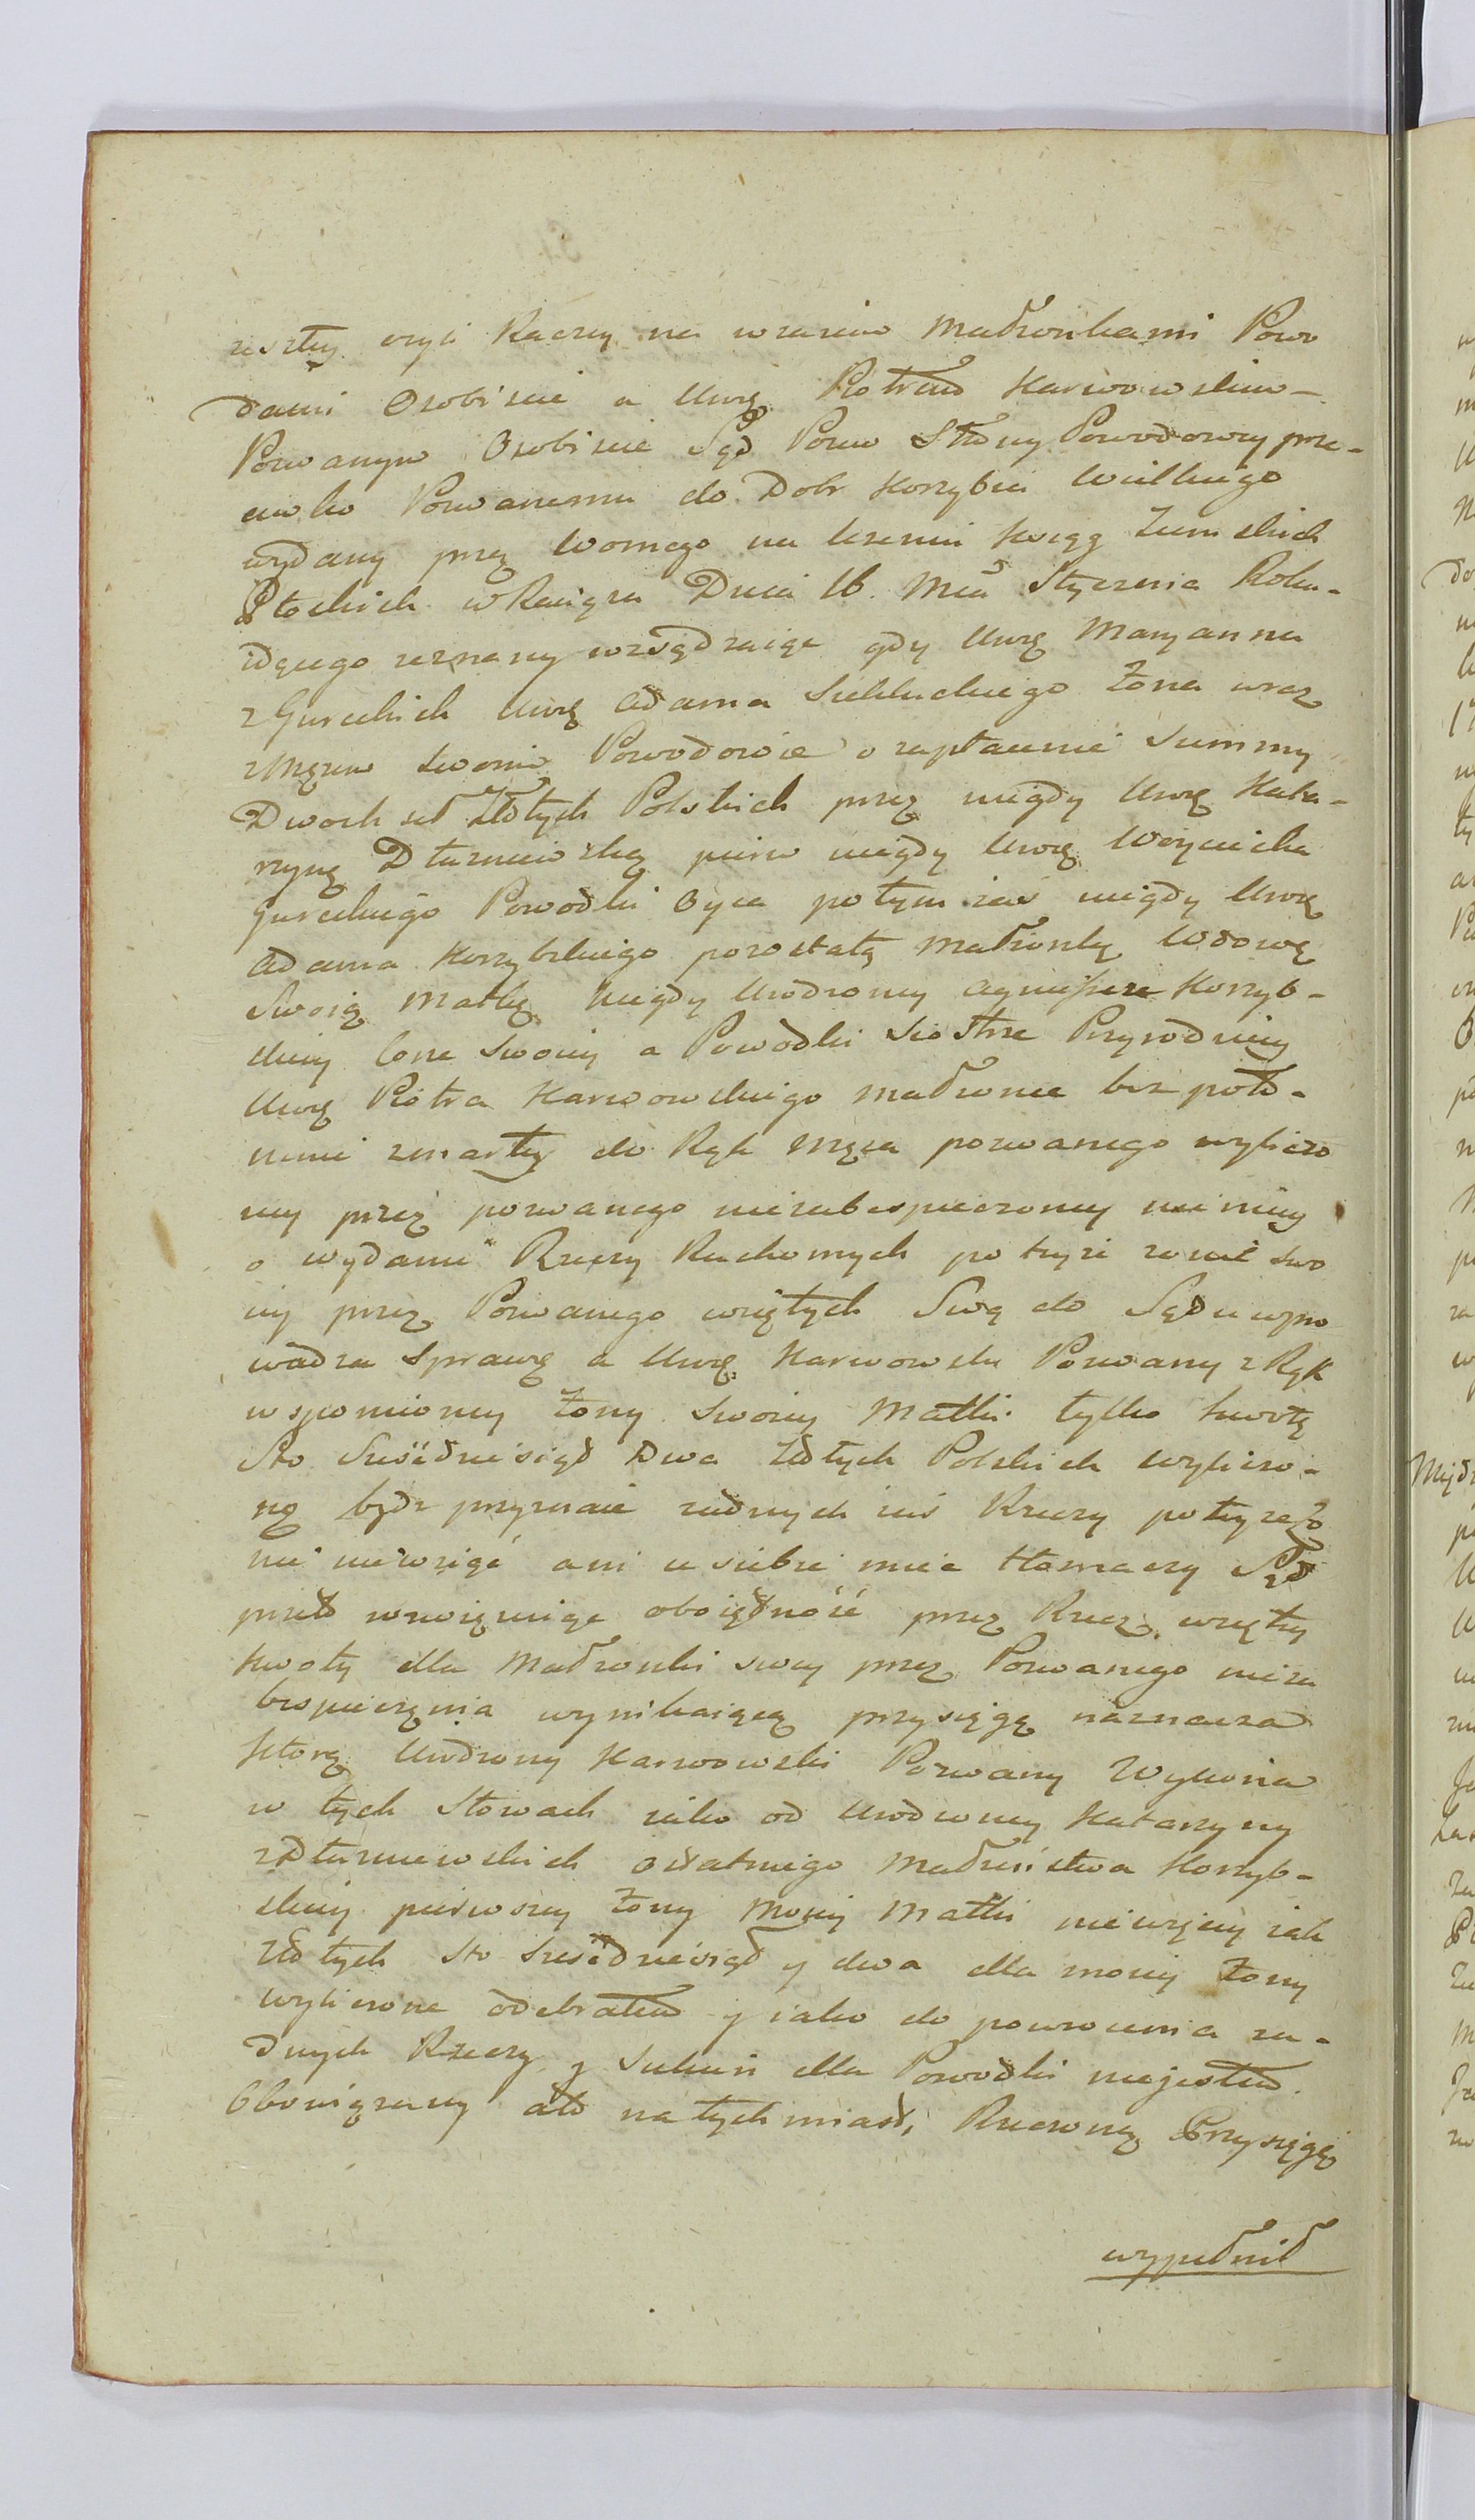 zeszłey czyli Raczey na wzaiem Małżonkami Powo
dami Osobiscie a Urog Piotrem Karwowskim –
Pozwanym Osobiscie Sąd Pozew Strony Powodowey prze-
ciwko Pozwanemu do Dobr Korzybia Wielkiego
wydany prez Woznego na Xięgg Ziemskich
Płockich w Raciąza Dnia 16. Mca Stycznia Roku-
idącego zeznany wzrządzaiąc gdy Urog Maryanna
z Gureckich Urog Adama Sieklućkiego Żona wraz
z Mężem Swoim Powodowie o zapłacenie Summy
Dwoch set Złłtych Polskich przez niegdy Urog Kata-
rzynę Dłuzniewską pierw niegdy Urog Woyciecha
Gureckiego Powodki Oyca potym zas niegdy Urog
Adama Korzybskiego pozostałą Małzonkę Wdowę
Swoią Matkę niegdy Urodzoney Agnieszce Korzyb-
skiey Corce Swoiey a Powodki Siostrze Przyrodniey
Urog Piotra Karwowskiego małzonce bez poto-
mnie zmarłey do Rąk Męza pozwanego wyliczo
ney przez pozwanego niezabespieczoney niemniey
o wydanie Rzeczy Ruchomych po teyze zonie swo
iey przez Pozwanego wziętych Swą do Sądu wpro
wadza Sprawę a Urog Karwowski Pozwany z Rąk
wspomioney Żony Swoiey Matki tylko kwotę
Sto Sześćdziesiąd Dwa Złłtych Polskich wyliczo-
ną bydz przyznaie zadnych zas Rzeczy po teyze Żo
nie niewziąć ani u siebie miec tłomaczy Sąd
przeto wzwiązuiąc oboiętność przez Rzecz. wziętey
kwoty dla Małzonki swey przez Pozwanego nieza
bespieczenia wynikaiącą przysięgę naznacza
ktorą Urodzony Karwowski Pozwany Wykona
w tych Słowach iako od Urodzoney Katarzyny
z Dłuzniewskich ostatniego Małzeństwa Korzyb-
skiey pierwszey Żony Moiey Matki niewięcey iak
Złłtych sto Sześćdziesiąd y dwa dla moiey Żony
wyliczone odebrałem y iako do powrocenia za-
dnych Rzeczy y Sukien dla Powodki niejestem
Obowiązany ato natychmiast, Rzeczoney Przysięgę
wypełnił